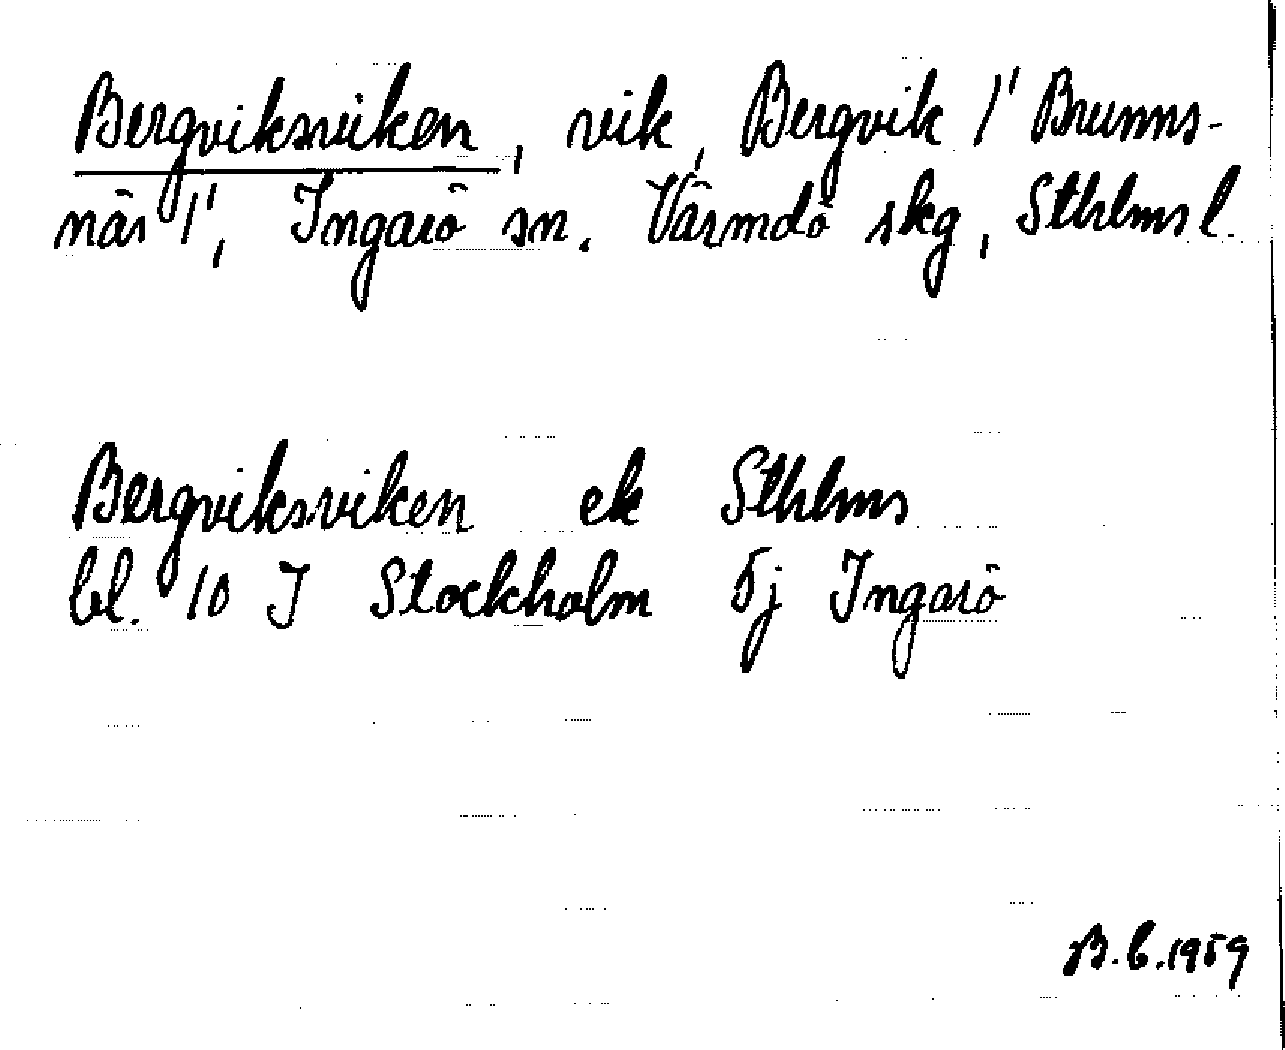 Bergviksviken, vik, Bergvik 1' Brunns-
näs 1', Ingarö sn. Värmdö skg, Sthlms l.
Bergviksviken ek Sthlms
bl. 10 J Stockholm 5j Ingarö
B.C.1959